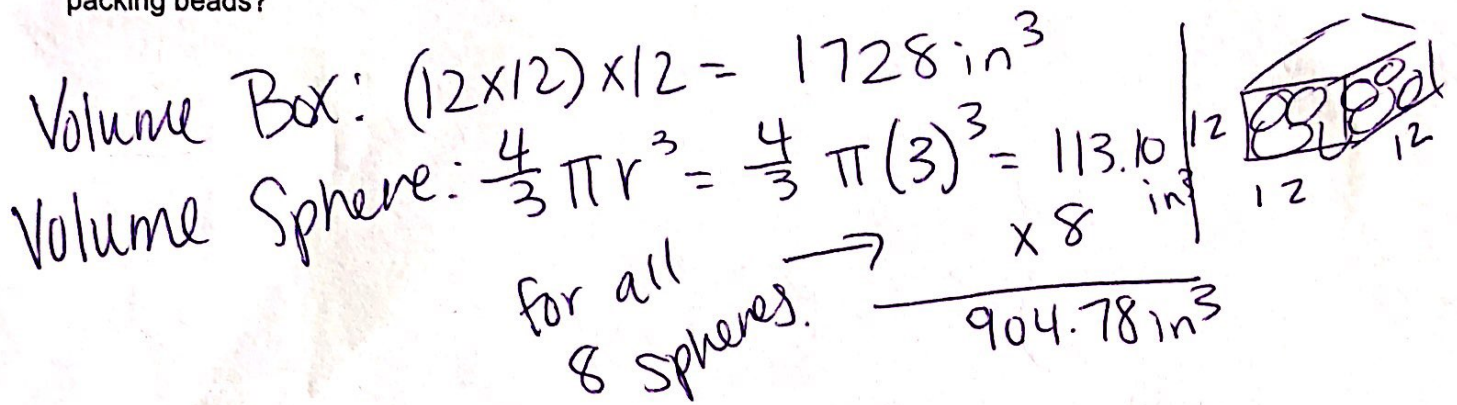 packing beads?
Volume Box: (12x12) x12 = 1728 in³
Volume Sphere: 4/3 πr³ = 4/3 π(3)³ = 113.10 in³
x 8
for all
8 spheres. →
904.78 in³
12
12
12